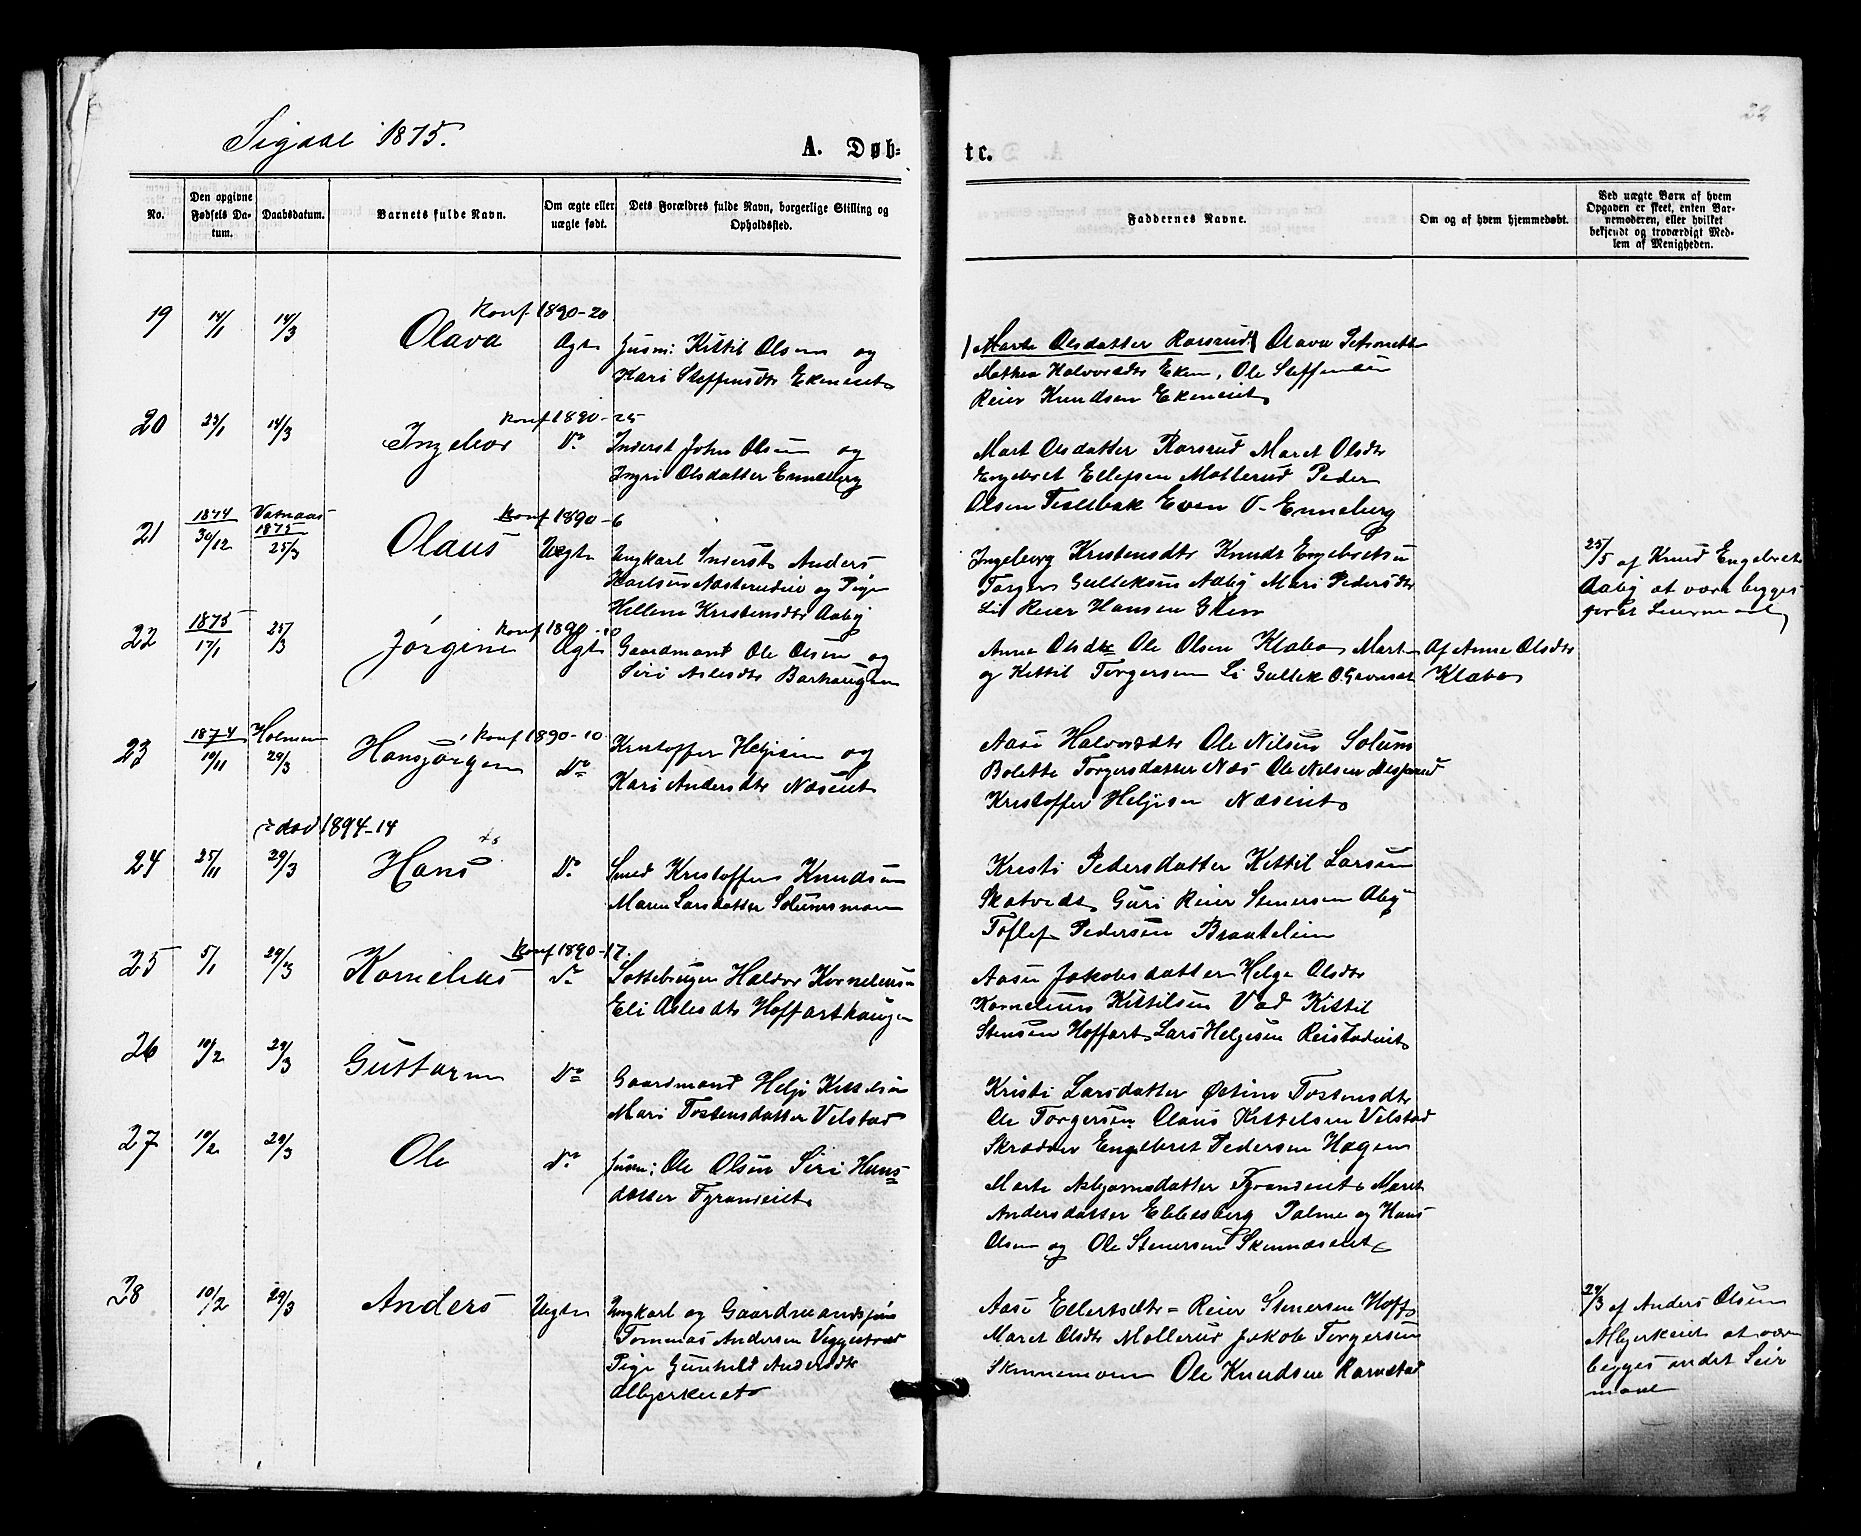 22
Sigdal 1875.
A. Døb-
te.
No.
Den opgivne Fødsels Datum.
Daabsdatum.
Barnets fulde Navn.
Om ægte eller uægte født.
Dets Forældres fulde Navn, borgerlige Stilling og Opholdssted.
Faddernes Navne.
Om og af hvem hjemmedøbt.
Ved uægte Barn af hvem Opgaven er skeet, enten Barnemoderen, eller hvilket bekjendt og troværdigt Medlem af Menigheden.
Konf 1890-20
19 14/1 14/3 Olava Ægte Husm: Kittil Olsen og
Kari Steffensdtr Ekeneiet
Marte Olsdatter Rorsrud Olava Petronette
Mathea Halvorsdtr Eken, Ole Steffensen
Reier Knudsen Ekeneiet
Konf 1890-25
20 23/1 14/3 Ingebor Do Inderst John Olsen og
Ingri Olsdatter Enneberg
Mart Olsdatter Rorsrud Maret Olsdtr
Engebret Ellefsen Mollerud Peder
Olsen Teslebak Even O. Enneberg
Konf 1890-6
21 1874 30/12 Vatnaas 1875 25/3 Olaus Uægte Ungkarl Inderst Anders
Karlsen Næsterudeie og Pige
Hellene Kristensdtr Aaby
Ingeborg Kristensdtr Knudt Engebretsen
Torger Gulleksen Aaby Mari Pedersdtr
Li Reier Hansen Glem
25/5 af Knud Engebrets
Aaby at være begges
første Leiermaal
Konf 1890-10
22 1875 17/1 25/3 Jørgine Ægte Gaardmand Ole Olsen og
Siri Aslesdtr Barhaugen
Anne Olsdtr Ole Olsen Klabo Mart
og Kittil Torgersen Li Gullek O.
Af Anne Olsdtr
Klabo
Konf 1890-10
23 1874 10/11 Holmen 29/3 Hansjørgen Do Kristoffer Heljesen og
Kari Andersdtr Næseiet
Aase Halvorsdtr Ole Nilsen Solum
Bolette Torgersdatter Næs Ole Nilsen
Kristoffer Heljesen Næseiet
død 1894-14
24 25/11 29/3 Hans Do Smed Kristoffer Knudsen
Maren Larsdatter Solumsmoen
Kristi Pedersdatter Kittil Larsen
Skatvedt Guri Reier Stenersen Aby
Toflef Pedersen Braatelien
Konf 1890-17.
25 5/1 29/3 Kornelius Do Haldor Kornelusen
Eli Aslesdtr Hoffarthaugen
Aase Jakobsdatter Helge Olsdtr
Kornelius Kittilsen Vad Kittil
Stensen Hoffart Lars Helgesen Reistadeiet
26 10/2 29/3 Guttorm Do Gaardmand Helje Kittelsen
Mari Tostensdatter Velstad
Kristi Larsdatter Østine Tostensdtr
Ole Torgersen Olaus Kittelsen Velstad
Skrædder Engebret Pedersen Hagen
27 10/2 29/3 Ole Do Husm: Ole Olsen Siri Hans-
datter Fyraneiet
Marte Asbjørnsdatter Fyraneiet Maret
Andersdatter Ebbesberg Palme og Hans
Olsen og Ole Stenersen Skinnæseiet
28 10/2 29/3 Anders Uægte Ungkarl og Gaardmandssøn
Tommas Andersen Veggestad
Pige Gunhild Andersdtr
Albjerkeiet
Aase Eilertsdtr Reier Stenersen Hoff
Maret Olsdtr Mollerud Jakob Torgersen
Skinnemoen Ole Knudsen Ramstad
29/3 af Anders Olsen
Albjerkeiet at være
begges andet Leir
maal